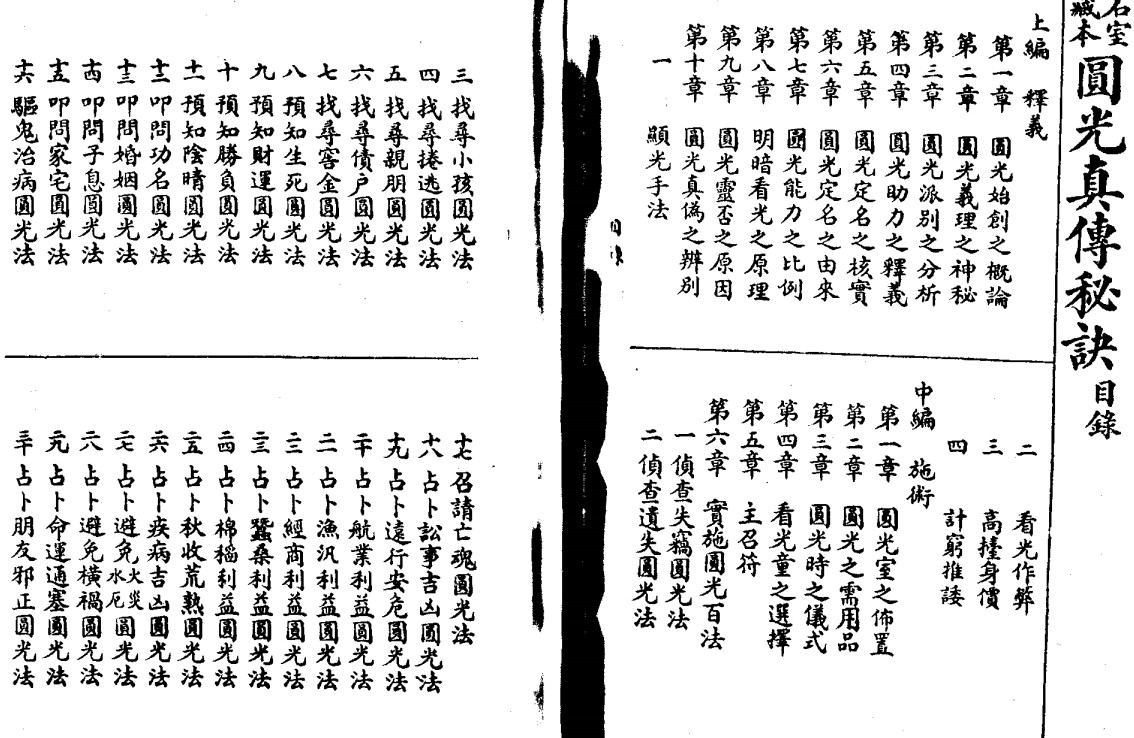 石室藏本 圓光真傳秘訣 目錄
上編 釋義
第一章 圓光始創之概論
第二章 圓光義理之神秘
第三章 圓光派別之分析
第四章 圓光助力之釋義
第五章 圓光定名之核實
第六章 圓光定名之由來
第七章 圓光能力之比例
第八章 明暗看光之原理
第九章 圓光靈否之原因
第十章 圓光真僞之辨別
一 顯光手法
二 看光作弊
三 高擡身價
四 計窮推諉
中編 施術
第一章 圓光室之佈置
第二章 圓光之需用品
第三章 圓光時之儀式
第四章 看光童之選擇
第五章 主召符
第六章 實施圓光百法
一 偵查失竊圓光法
二 偵查遺失圓光法
目錄
三 找尋小孩圓光法
四 找尋捲逃圓光法
五 找尋親朋圓光法
六 找尋債户圓光法
七 找尋窖金圓光法
八 預知生死圓光法
九 預知財運圓光法
十 預知勝負圓光法
十一 預知陰晴圓光法
十二 叩問功名圓光法
十三 叩問婚姻圓光法
十四 叩問子息圓光法
十五 叩問家宅圓光法
十六 驅鬼治病圓光法
十七 召請亡魂圓光法
十八 占卜訟事吉凶圓光法
十九 占卜遠行安危圓光法
二十 占卜航業利益圓光法
二一 占卜漁汎利益圓光法
二二 占卜經商利益圓光法
二三 占卜蠶桑利益圓光法
二四 占卜棉稻利益圓光法
二五 占卜秋收荒熟圓光法
二六 占卜疾病吉凶圓光法
二七 占卜避免火災水厄圓光法
二八 占卜避免橫禍圓光法
二九 占卜命運通塞圓光法
三十 占卜朋友邪正圓光法